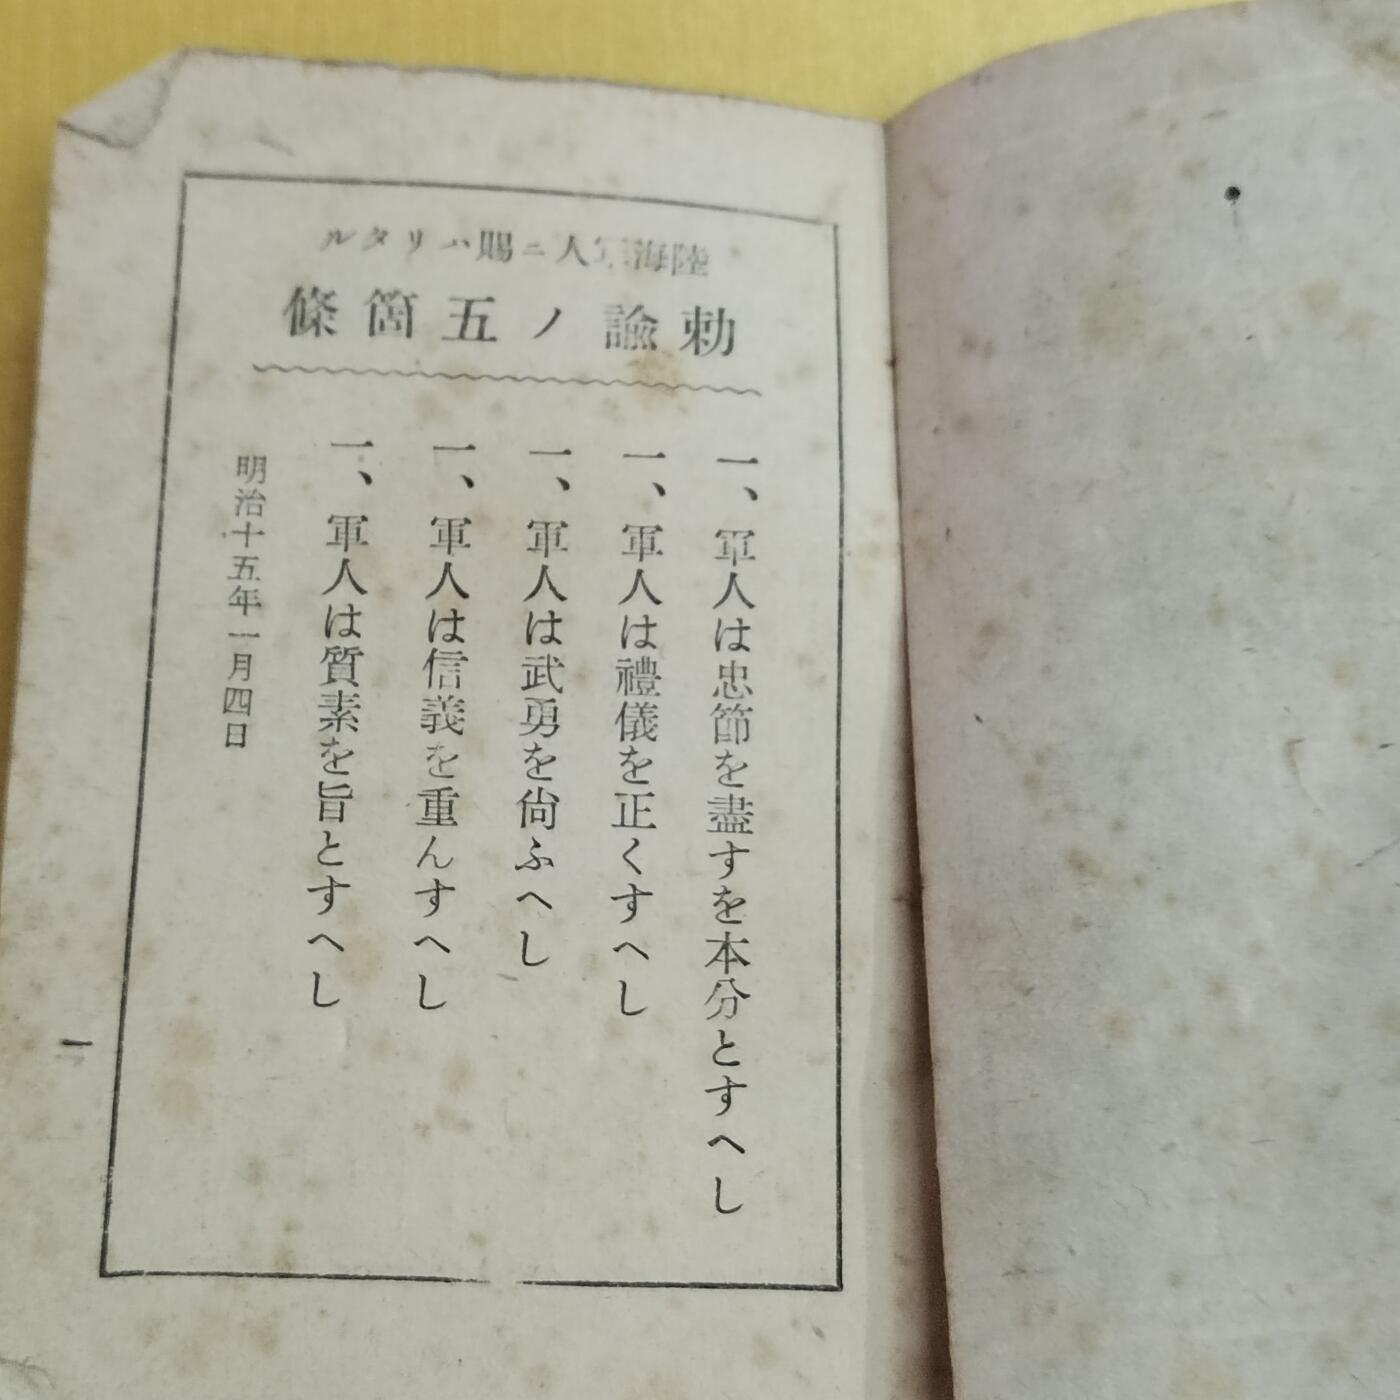 陸海軍人ニ賜ハリタル
勅諭ノ五箇條
一、軍人は忠節を盡すを本分とすへし
一、軍人は禮儀を正くすへし
一、軍人は武勇を尙ふへし
一、軍人は信義を重んすへし
一、軍人は質素を旨とすへし
明治十五年一月四日
一